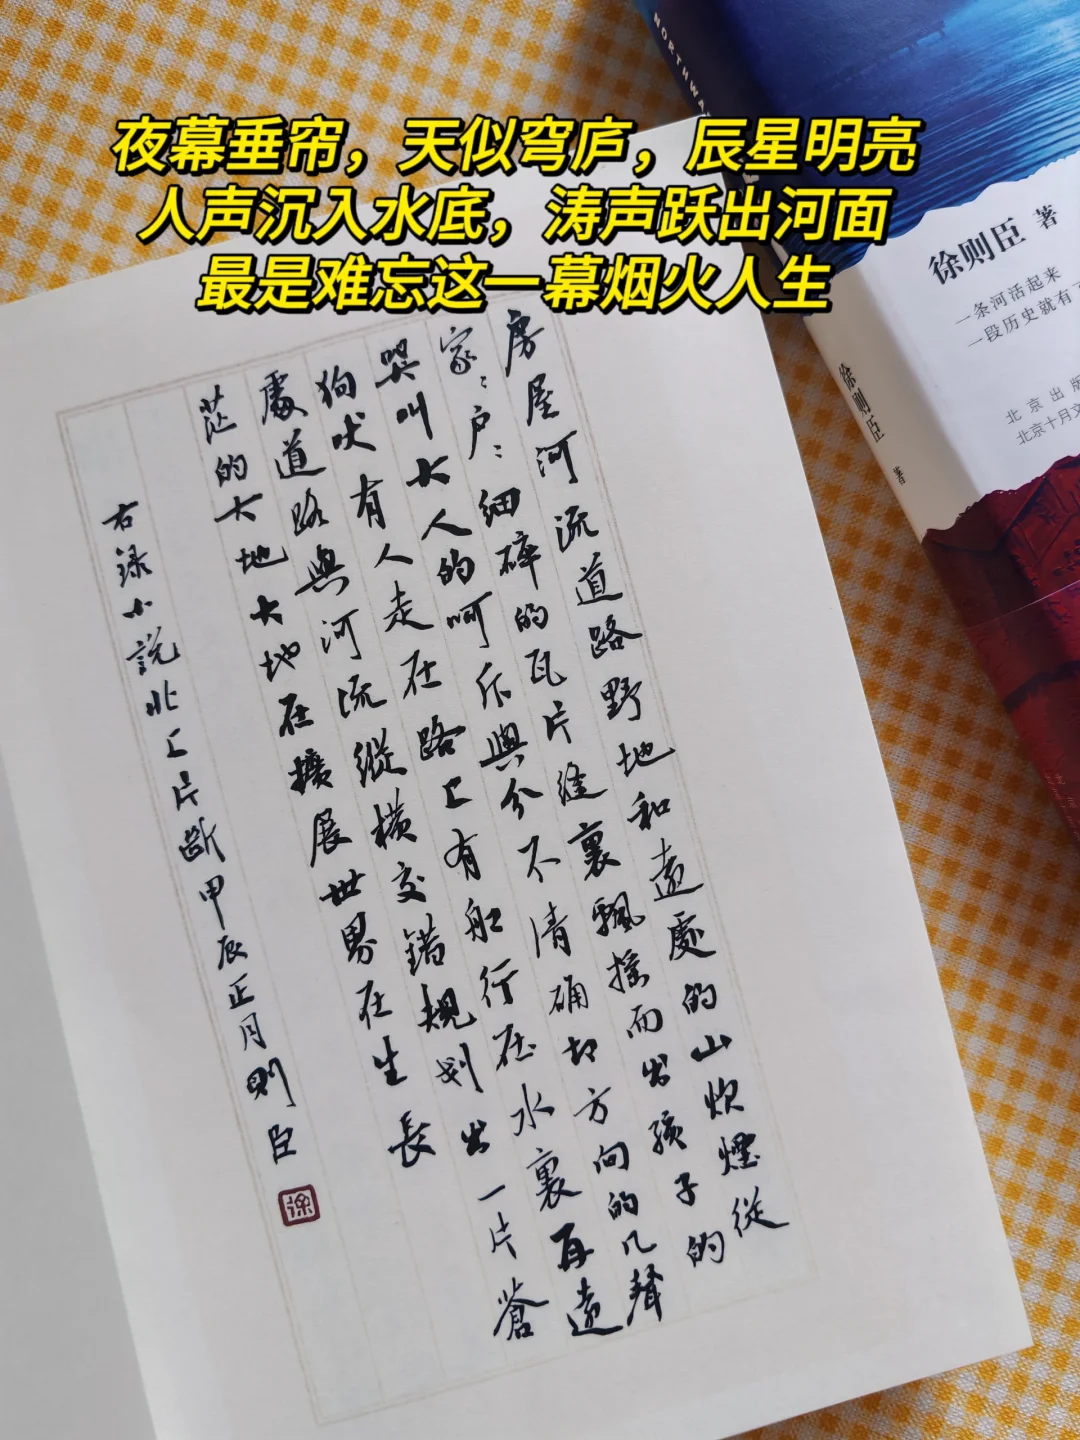 夜幕垂帘，天似穹庐，辰星明亮
人声沉入水底，涛声跃出河面
最是难忘这一幕烟火人生
房屋河流道路野地和遠處的山炊煙從
家：户：细碎的瓦片縫裏飄摇而出孩子的
哭叫大人的呵斥與分不清确切方向的几聲
狗吠有人走在路上有船行在水裏再遠
處道路與河流縱横交錯規划出一片蒼
茫的大地大地在擴展世界在生長
右録小説北上片斷甲辰正月則臣
徐
NORTHWA
徐则臣 著
一条河活起来
一段历史就有了
北京出版
北京十月文
徐则臣 著